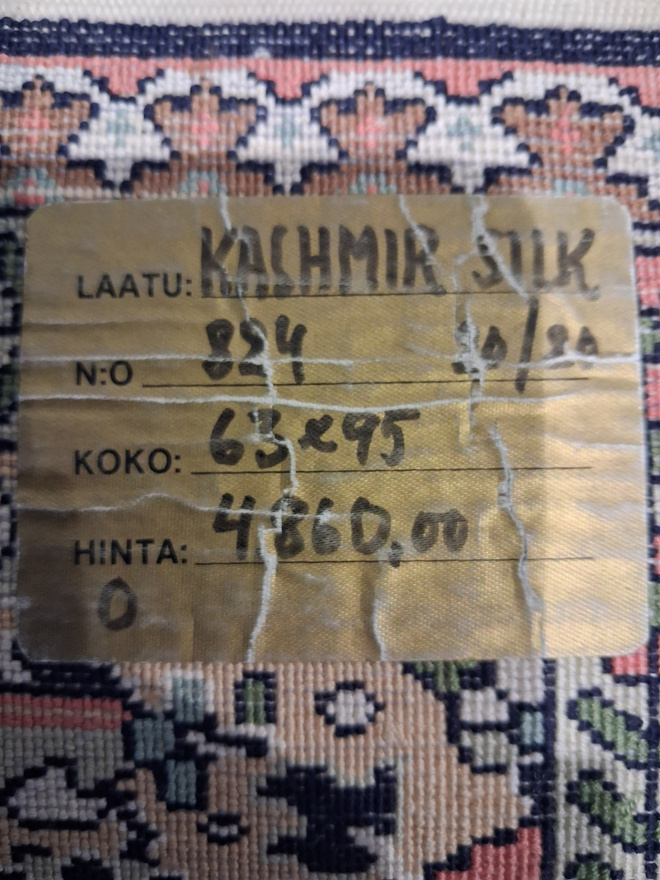 LAATU: KASHMIR SILK
N:O 824 20/20
KOKO: 63x95
HINTA: 4860,00
0